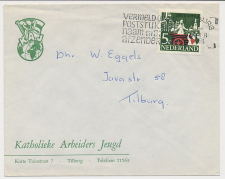 VERMELD
POSTREK
NAAM
AFZENDER
NEDERLAND
KAJ
Dhr. W. Eggels
Javastr 58
Tilburg
Katholieke Arbeiders Jeugd
Korte Tuinstraat 7 Tilburg Telefoon 21560